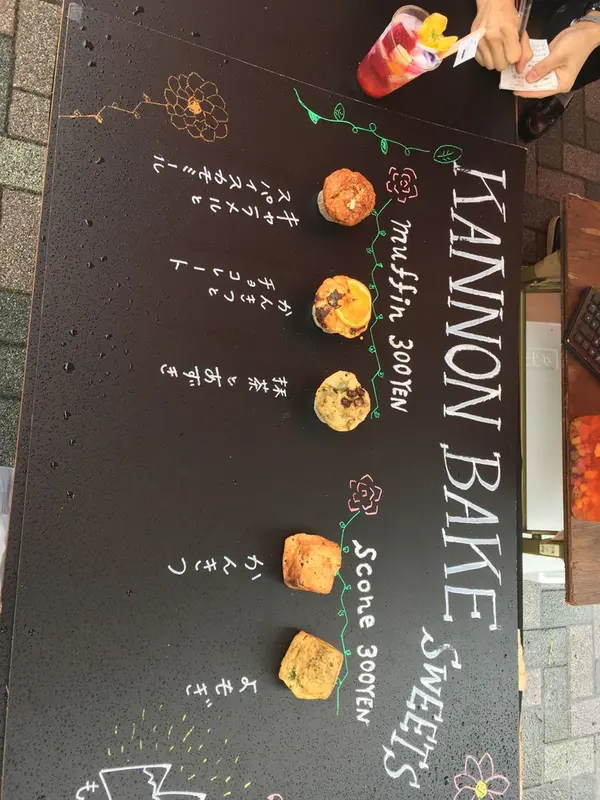 KANNON BAKE SWEETS
muffin 300YEN
キャラメルと
スパイスカモミール
かんきつと
チョコレート
抹茶とあずき
scone 300YEN
かんきつ
よもぎ